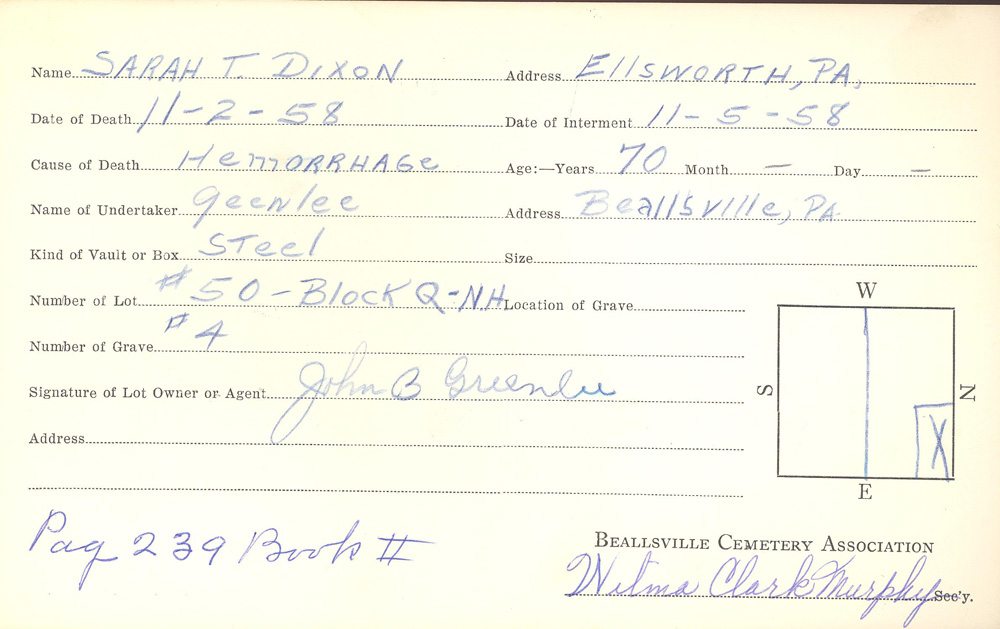 Name SARAH T. DIXON Address Ellsworth, PA,
Date of Death 11-2-58 Date of Interment 11-5-58
Cause of Death Hemorrhage Age:—Years 70 Month — Day —
Name of Undertaker Geenlee Address Beallsville, PA.
Kind of Vault or Box Steel Size
Number of Lot #50-Block Q-NH Location of Grave
Number of Grave #4
Signature of Lot Owner or Agent John B Greenlee
Address
W
S
N
X
E
Pag 239 Book II
BEALLSVILLE CEMETERY ASSOCIATION
Wilma Clark Murphy Sec'y.